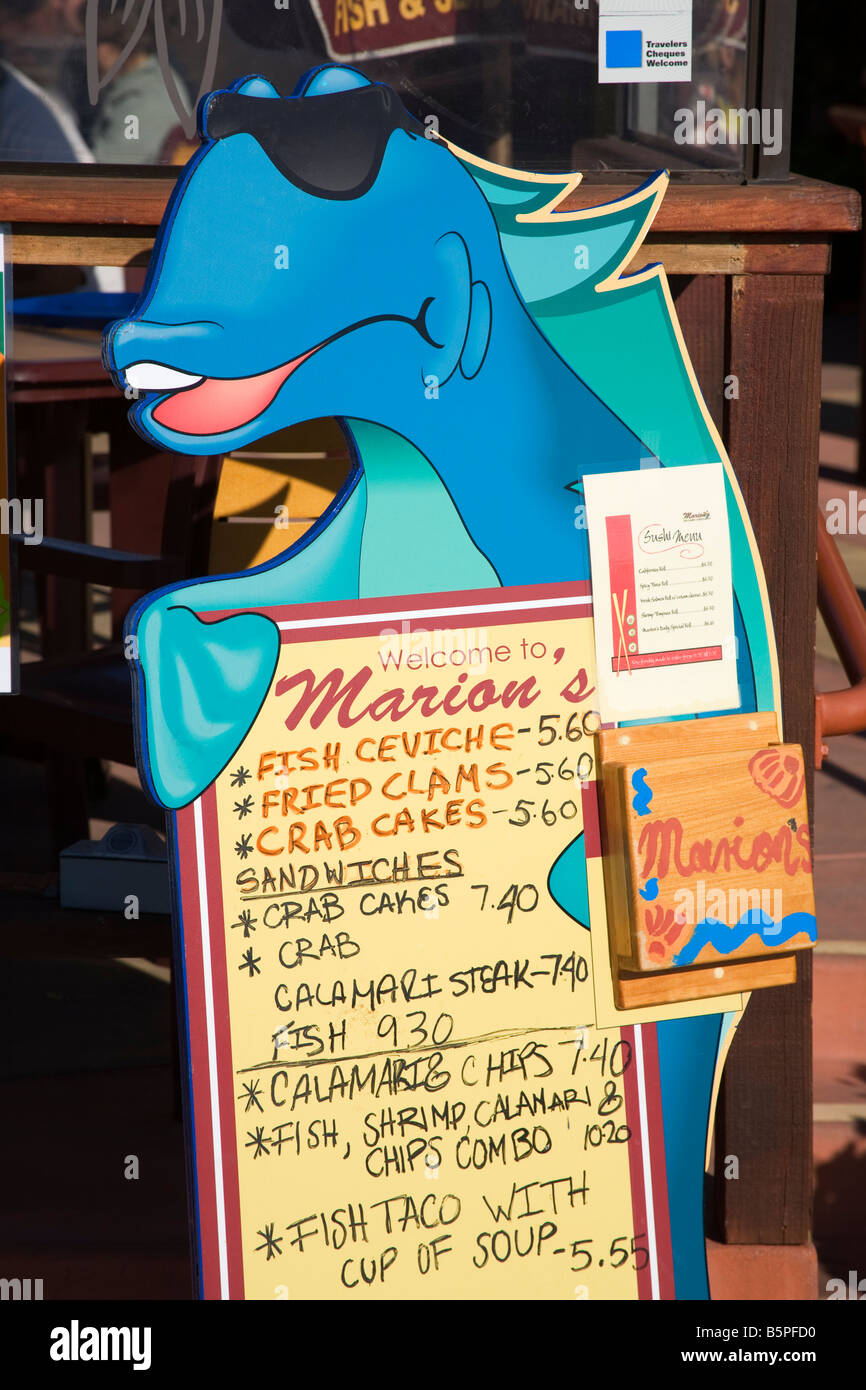 FISH &
Travelers
Cheques
Welcome
Marion's
Sushi Menu
California Roll
Spicy Tuna Roll
Shrimp Tempura Roll
Welcome to
Marion's
* FISH CEVICHE - 5.60
* FRIED CLAMS - 5.60
* CRAB CAKES - 5.60
SANDWICHES
* CRAB CAKES 7.40
* CRAB
CALAMARI STEAK - 7.40
FISH 9.30
* CALAMARI & CHIPS 7.40
* FISH, SHRIMP, CALAMARI &
CHIPS COMBO 10.20
* FISH TACO WITH
CUP OF SOUP - 5.55
Marion's
alamy
Image ID: B5PFD0
www.alamy.com